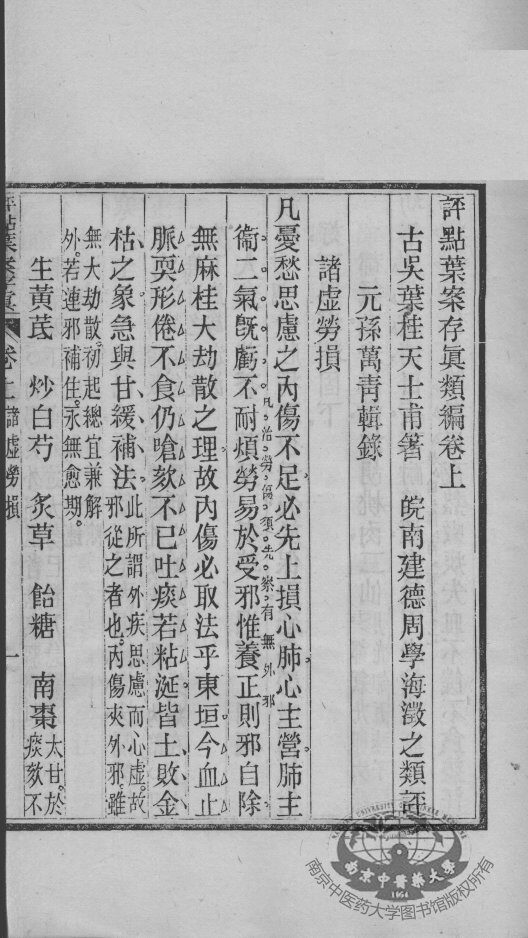 評點葉案存眞類編卷上
古吳葉桂天士甫著　皖南建德周學海澂之類評
元孫萬青輯錄
諸虛勞損
凡憂愁思慮之內傷不足必先上損心肺心主營肺主
衞二氣旣虧不耐煩勞易於受邪惟養正則邪自除
凡治勞傷須先察有無外邪
無麻桂大劫散之理故內傷必取法乎東垣今血止
脈耎形倦不食仍嗆欬不已吐痰若粘涎皆土敗金
枯之象急與甘緩補法
此所謂外疾思慮而心虛故
邪從之者也內傷夾外邪雖
無大劫散初起總宜兼解
外若連邪補住永無愈期
生黃芪　炒白芍　炙草　飴糖　南棗
太甘於
痰欬不
評點葉案存眞　卷上　諸虛勞損　一
南京中醫藥大學
1954
南京中医药大学图书馆版权所有